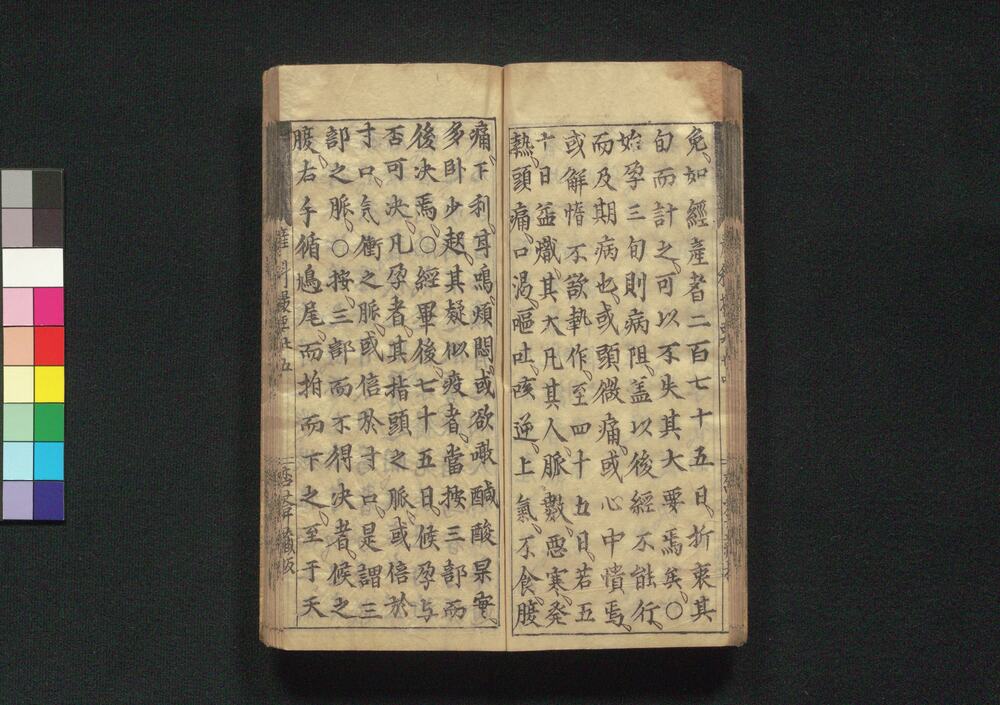 免如經産者二百七十五日折衷其
旬而計之可以不失其大要焉矣〇
始孕三旬則病阻盖以後經不能行
而及期病也或頭微痛或心中憒焉
或解惰不欲執作至四十五日若五
十日益熾其大凡其人脈數惡寒発
熱頭痛口渇嘔吐咳逆上氣不食腹
痛下利耳鳴煩悶或欲噉醎酸杲實
多卧少起其疑似疫者當按三部而
後决焉〇經畢後七十五日候孕与
否可决凡孕者其指頭之脈或倍於
寸口氣衝之脈或倍於寸口是謂三
部之脈〇按三部而不得决者候之
腹右手循鳩尾而拍而下之至于天
産科撮要 五
藏版